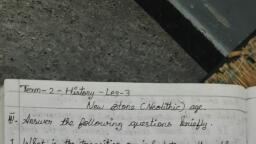 Term-2-History-Les-3
New stone (Neolithic) age.
III. Answer the following questions briefly.
1. What is the